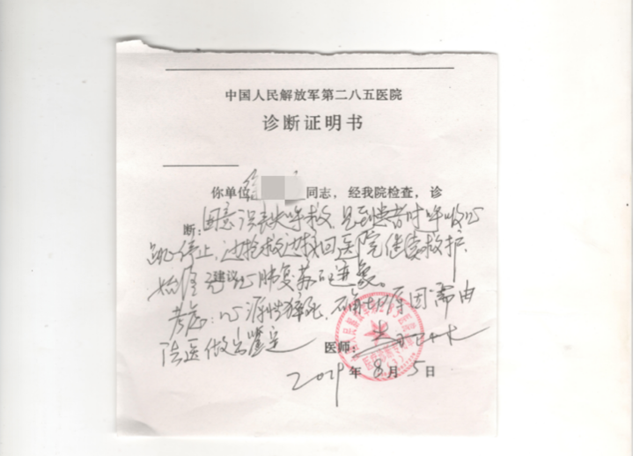 中国人民解放军第二八五医院
诊断证明书
你单位 同志，经我院检查，诊
断：因意识丧失呼救，见到患者时呼吸心
跳停止，边抢救边拉回医院继续救护，
始终无建议心肺复苏的迹象。
考虑：心源性猝死，确切原因需由
法医做出鉴定
医师：
2019年8月5日